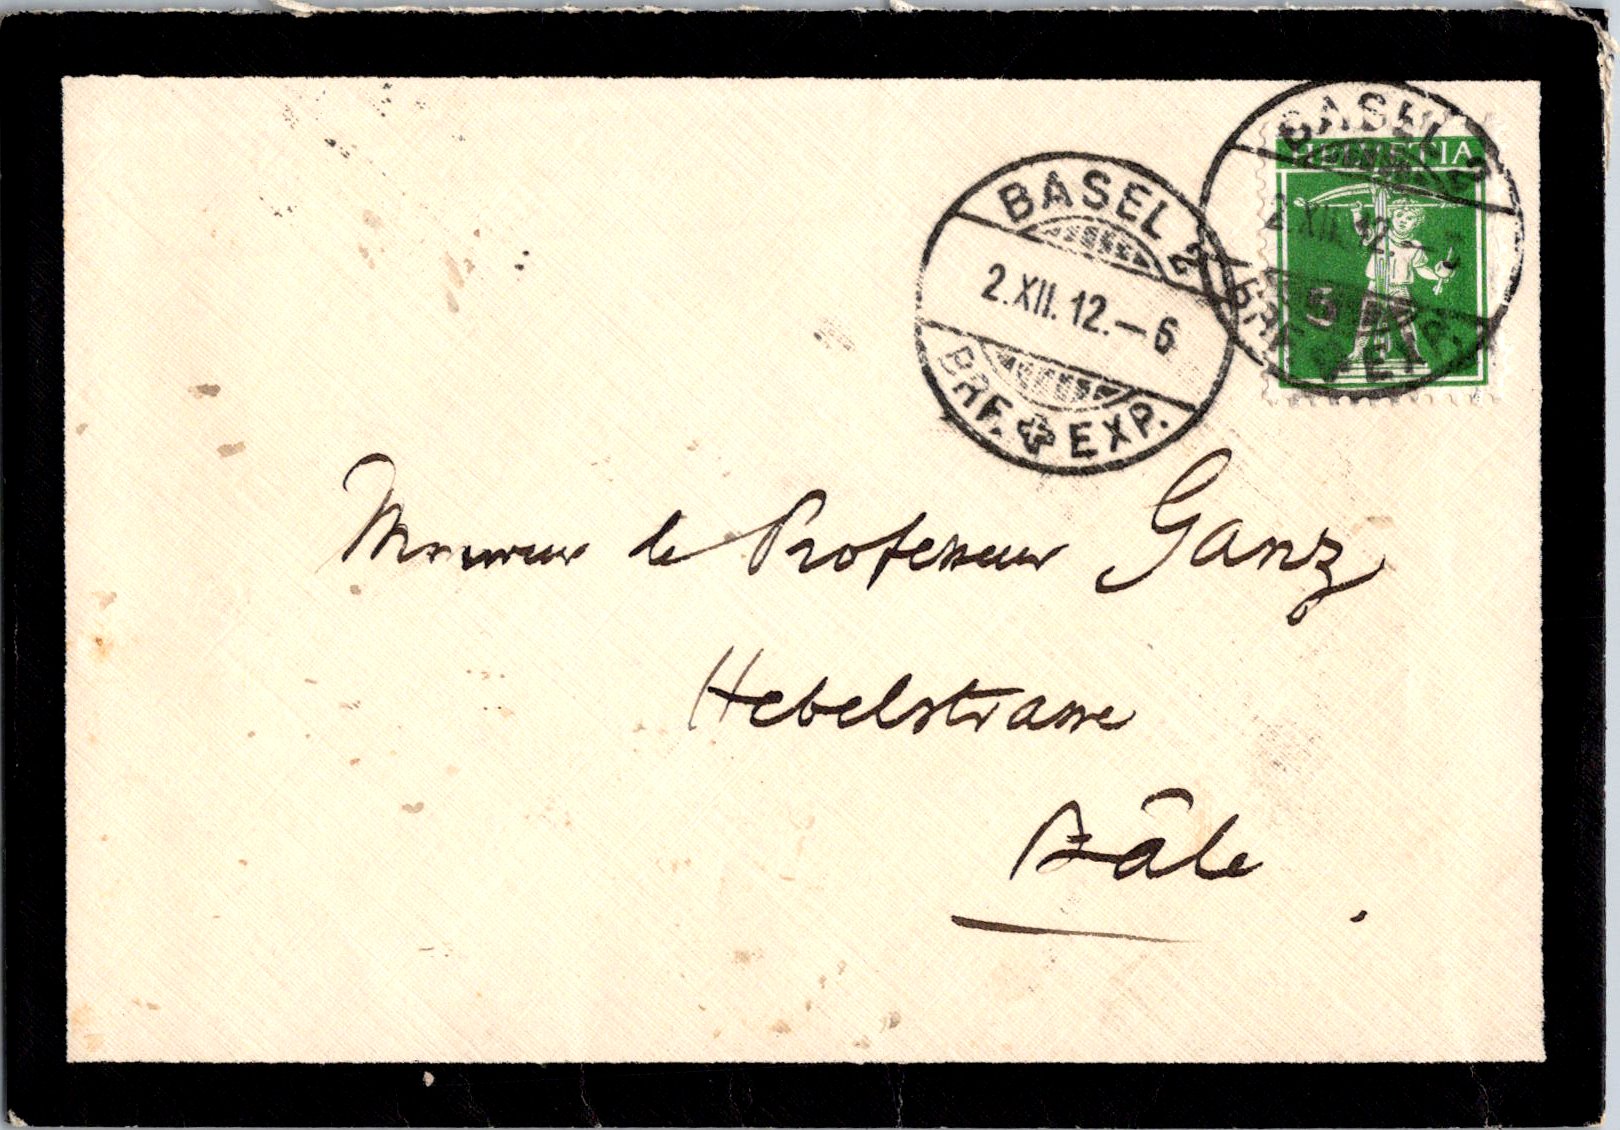 BASEL 2
2.XII.12.–6
BRF. EXP.
BASEL 2
2.XII.12.–
BRF. EXP.
HELVETIA
5
Monsieur le Professeur Ganz
Hebelstrasse
Bâle